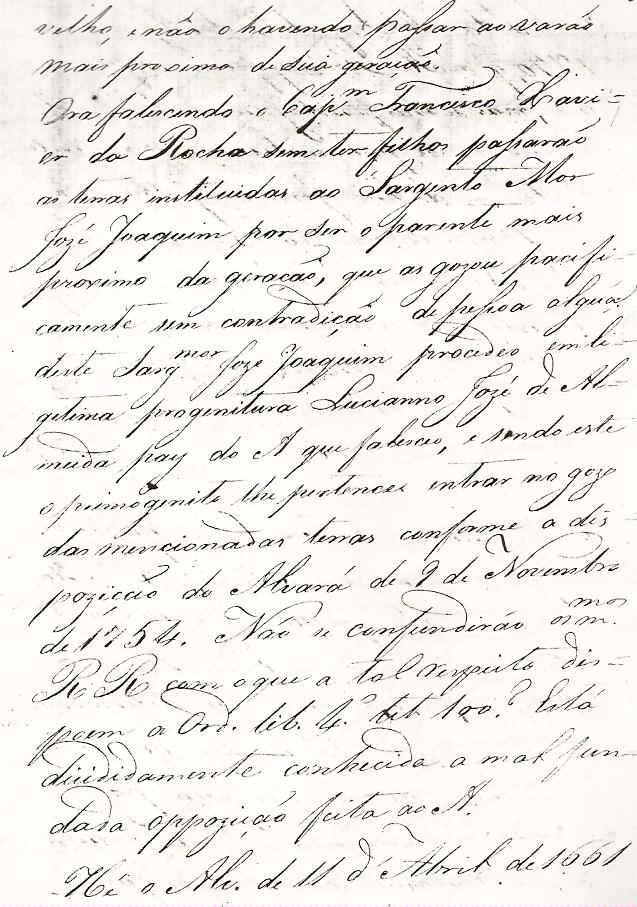 velho, e não o havendo passar ao varão
mais proximo de sua geração.
Ora falescendo o Cap.m Francisco Xavi-
er da Rocha sem ter filhos passarão
as terras instituidas ao Sargento Mor
Jozé Joaquim por ser o parente mais
proximo da geracão, que as gozou pacifi-
camente sem contradição de pessoa alguã,
deste Sarg mor Joze Joaquim procedeo em le-
gitima progenitura Lucianno Jozé de Al-
meida pay do A que falesceo, e sendo este
o primogenito lhe pertence entrar no gozo
das mencionadas terras conforme a dis
pozição do Alvará de 9 de Novembro
de 1754. Não se confundirão os m.mos
RR com o que a tal respeito dis-
poem a Ord. lib. 4.º tit 100.º Está
dicididamente conhecida a mal fun-
dada oppozição feita ao A.
Hé o Alv. de 11 d'Abril de 1661